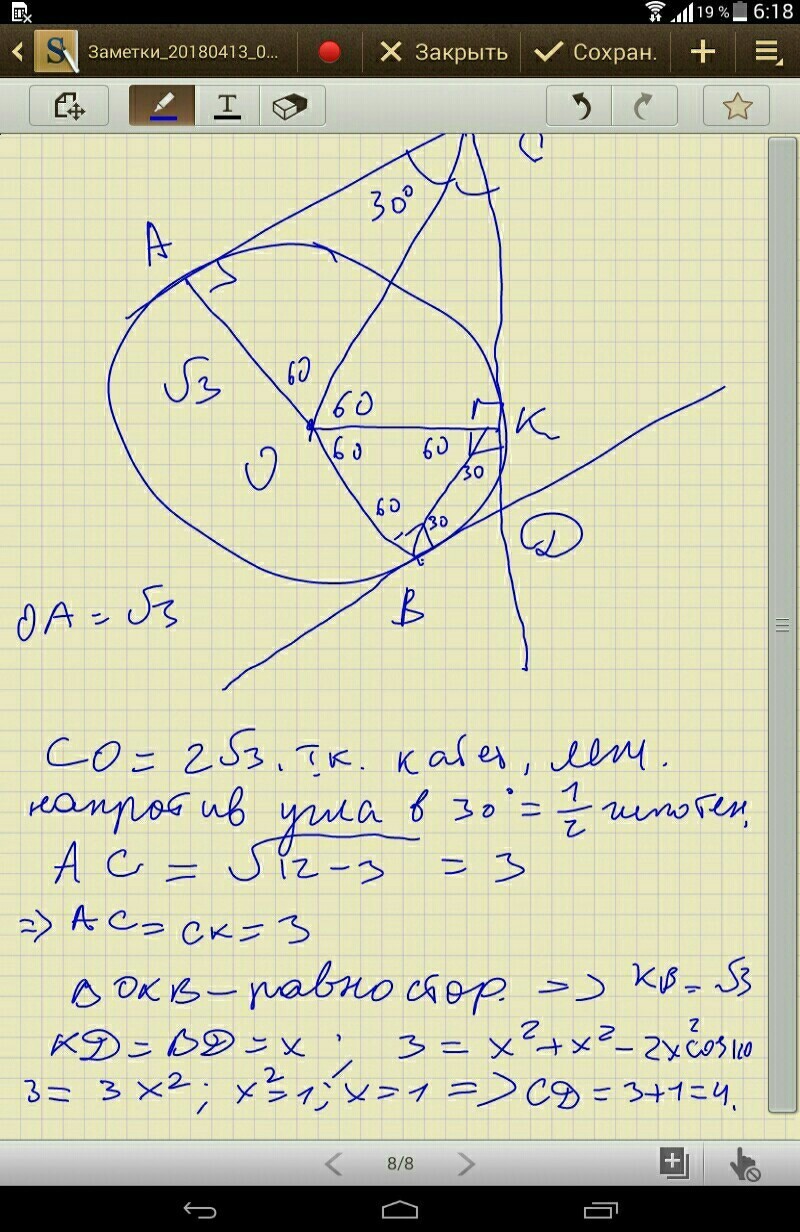 19 % 6:18
Заметки_20180413_0... Закрыть Сохран.
T
C
30°
A
√3
60
60
60
60
60
30
30
O
K
D
B
OA = √3
CO = 2√3, т.к. катет, леж.
напротив угла в 30° = 1/2 гипотен.
AC = √12-3 = 3
=> AC = CK = 3
∆ OKB - равностор. => KB = √3
KD = BD = x ; 3 = x² + x² - 2x² cos 120
3 = 3x² ; x² = 1 ; x = 1 => CD = 3+1=4.
8/8